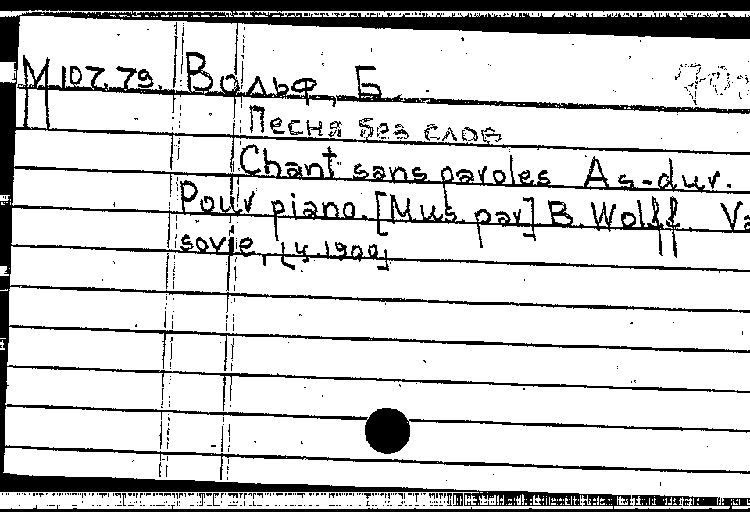 М 107.79. Вольф, Б.
Песня без слов
Chant sans paroles As-dur.
Pour piano. [Mus. par] B. Wolff. Va
sovie, [ч.1900]